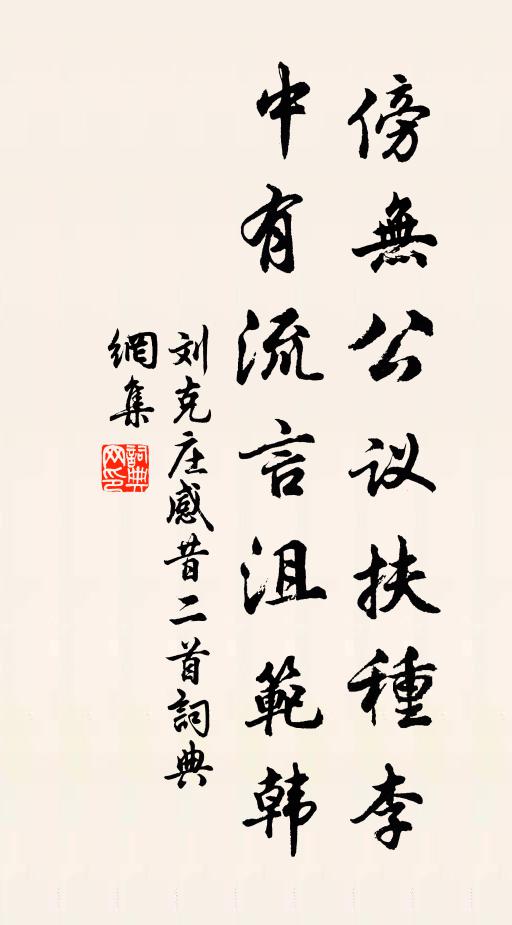 傍無公议扶種李
中有流言沮範韩
刘克庄感昔二首詞典
網集
詞典網印